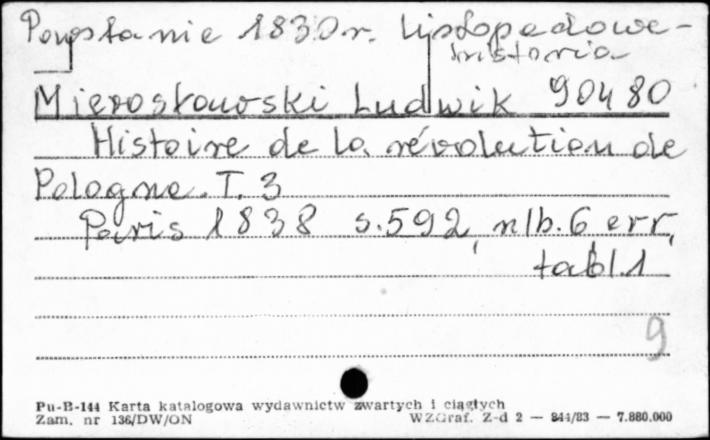 Powstanie 1830 r. listopadowe-
historia
Mierosławski Ludwik 90480
Histoire de la révolution de
Pologne. T. 3
Paris 1838 s. 592, nlb. 6 err,
tabl. 1
9
Pu-B-144 Karta katalogowa wydawnictw zwartych i ciągłych
Zam. nr 136/DW/ON WZGraf. Z-d 2 — 844/83 — 7.880.000